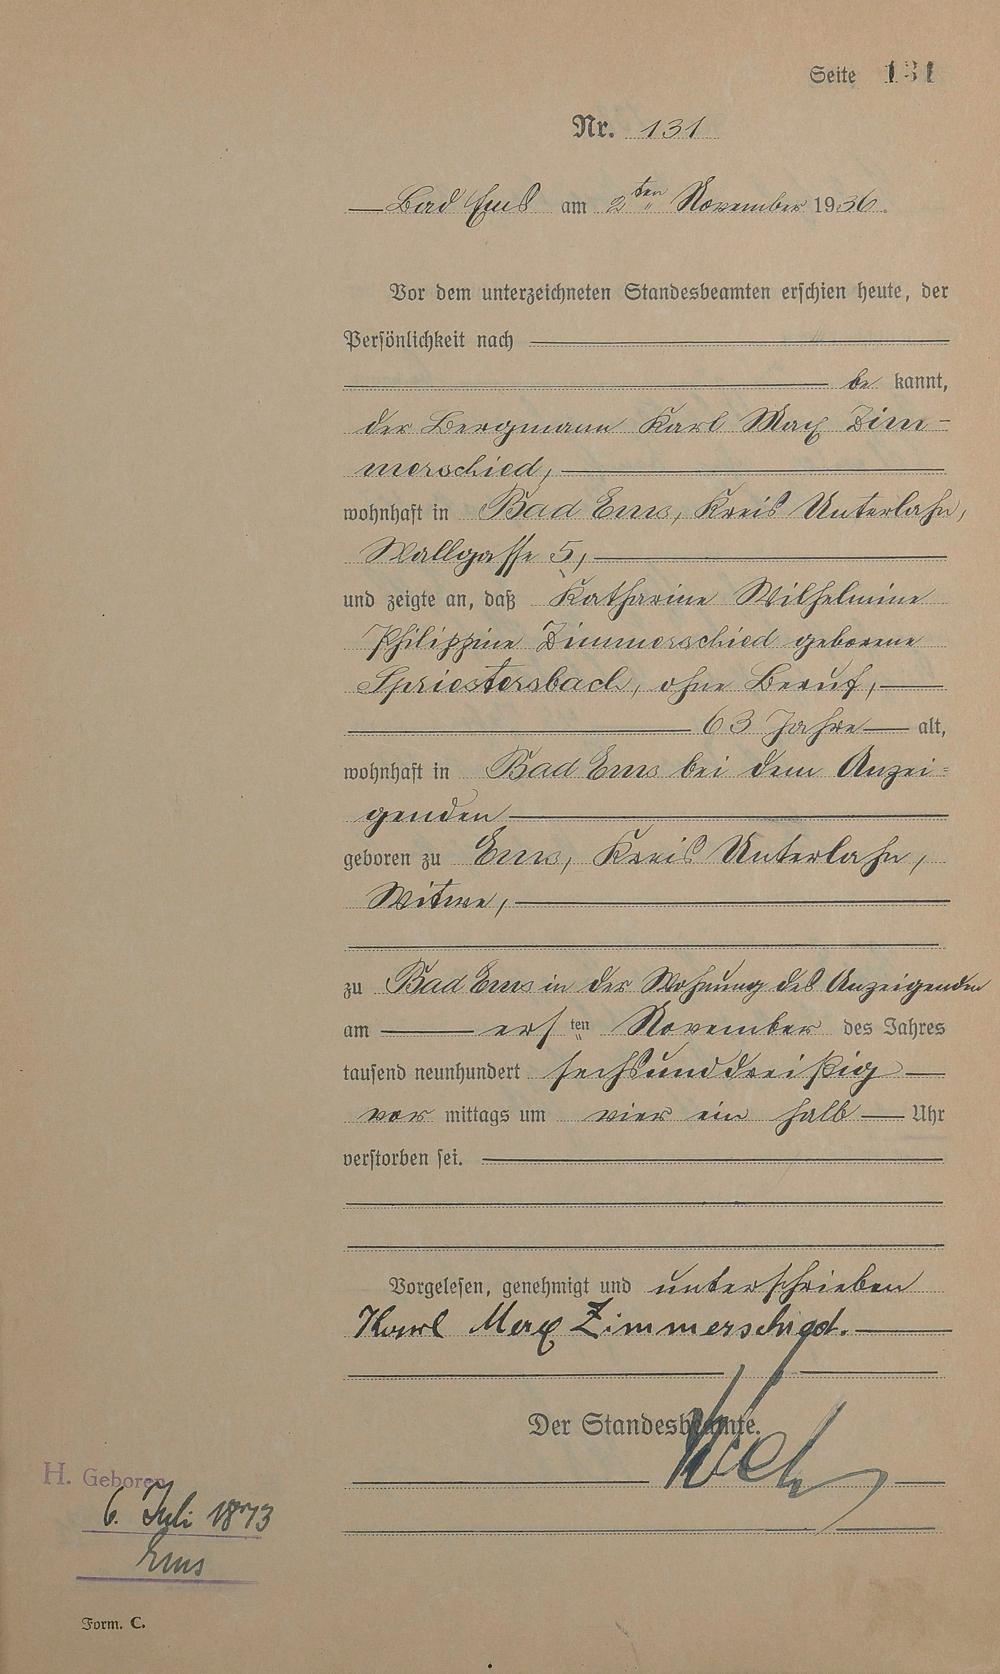 Seite 131
Nr. 131
Bad Ems am 2ten November 1936.
Vor dem unterzeichneten Standesbeamten erschien heute, der
Persönlichkeit nach
be kannt,
der Bergmann Karl Max Zim-
merschied,
wohnhaft in Bad Ems, Kreis Unterlahn,
Wallgasse 5,
und zeigte an, daß Katharine Wilhelmine
Philippine Zimmerschied geborene
Spriestersbach, ohne Beruf,
63 Jahre alt,
wohnhaft in Bad Ems bei dem Anzei-
genden
geboren zu Ems, Kreis Unterlahn,
Witwe,
zu Bad Ems in der Wohnung des Anzeigenden
am ersten November des Jahres
tausend neunhundert sechsunddreißig
vor mittags um vier ein halb Uhr
verstorben sei.
Vorgelesen, genehmigt und unterschrieben
Karl Max Zimmerschied.
Der Standesbeamte.
H. Geboren
6. Juli 1873
Ems
Form. C.